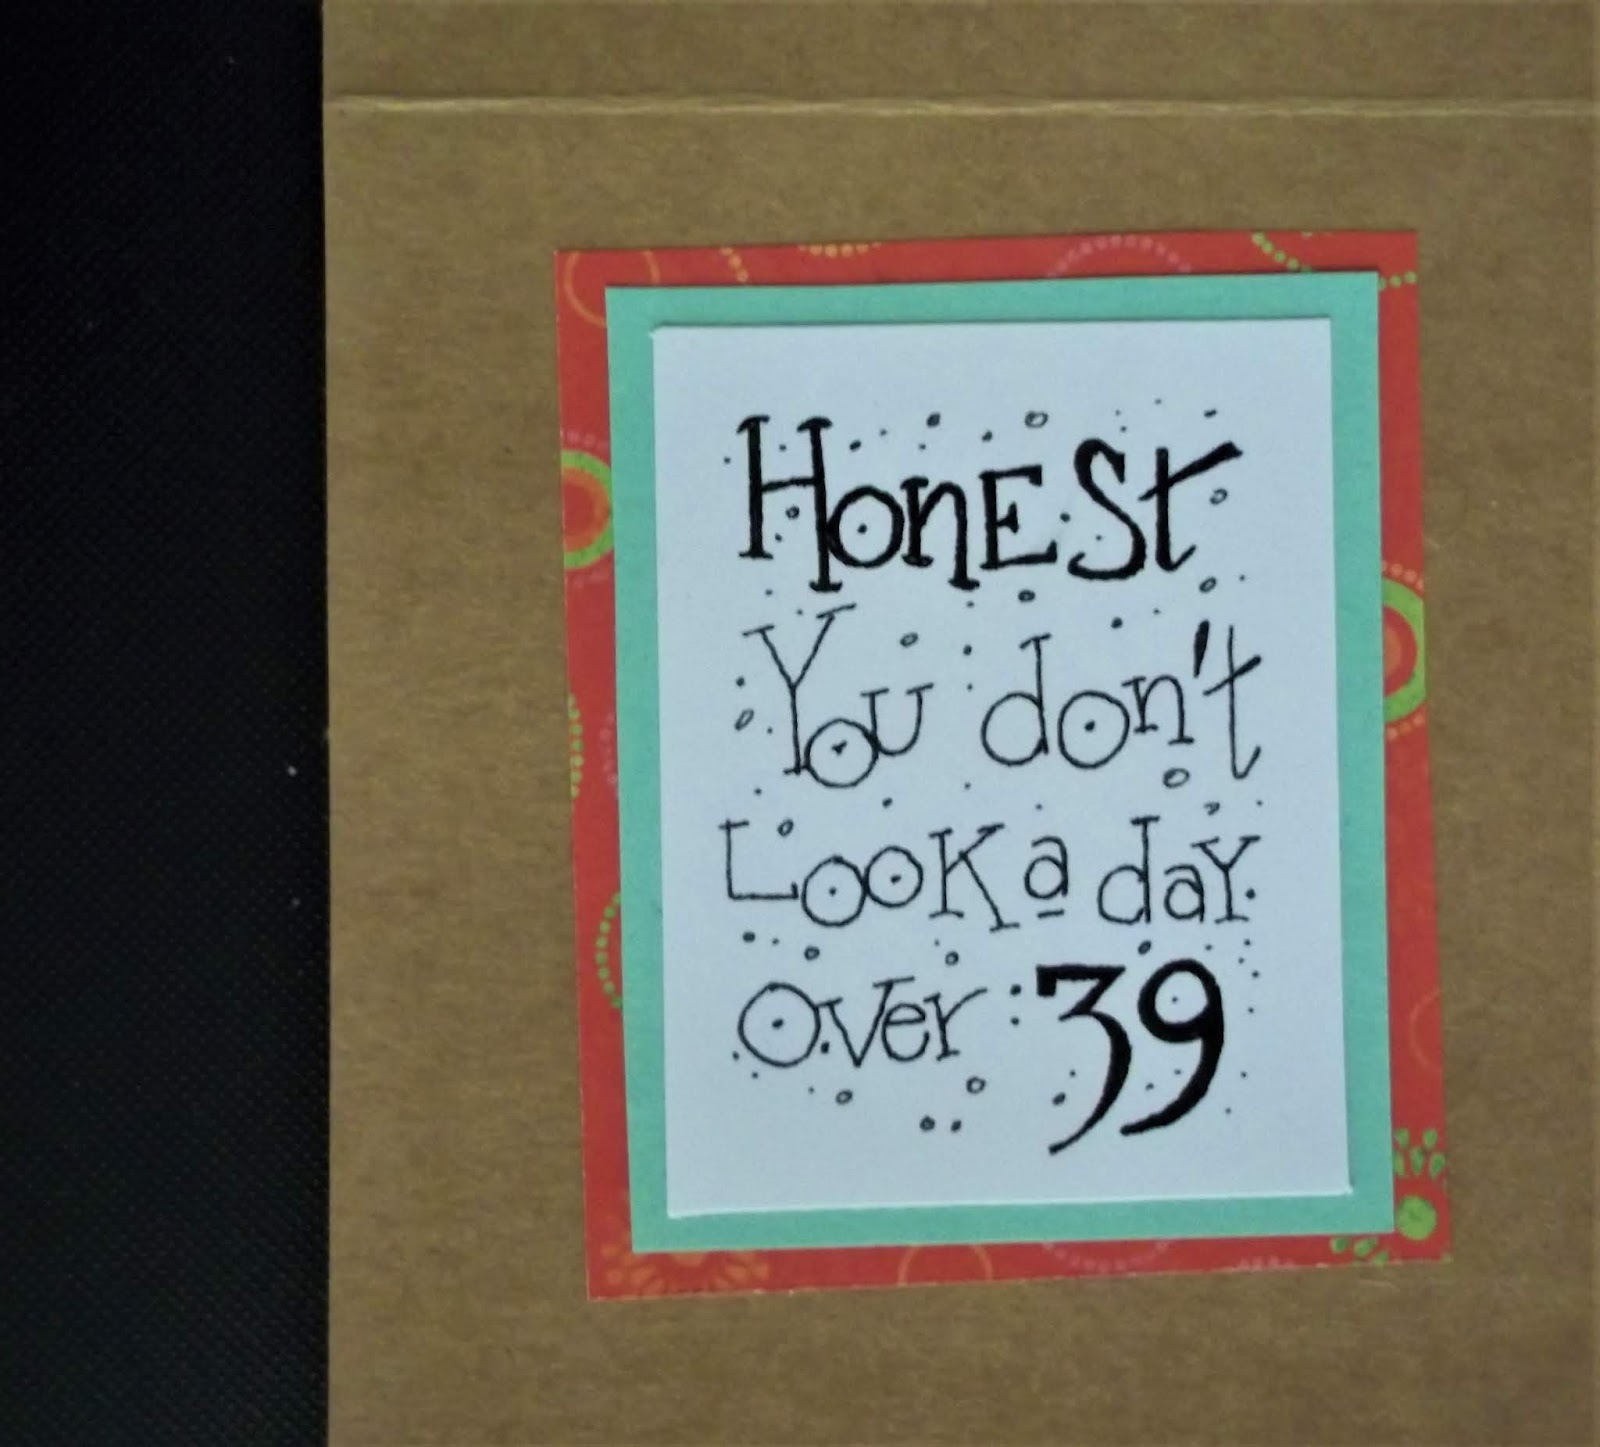 Honest
You don't
Look a day
Over 39